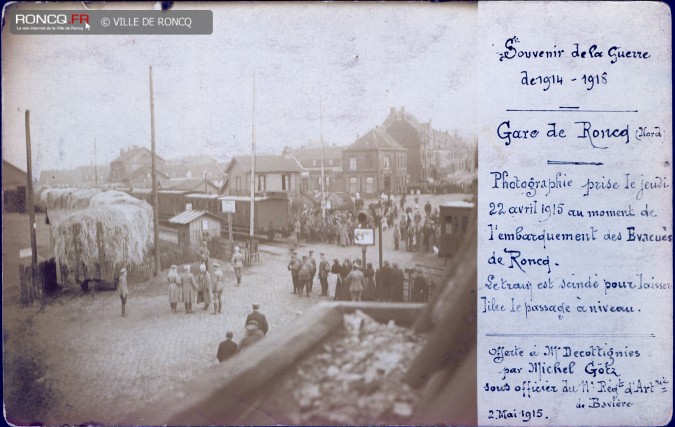 RONCQ.FR
Le site internet de la Ville de Roncq
© VILLE DE RONCQ
Souvenir de la Guerre
de 1914 - 1918
Gare de Roncq (Nord)
Photographie prise le jeudi
22 avril 1915 au moment de
l'embarquement des Evacués
de Roncq.
Le train est scindé pour laisser
libre le passage à niveau.
Offerte à Mr Decottignies
par Michel Götz
sous officier du 11e Régt d'Artie
de Bavière
2 Mai 1915.